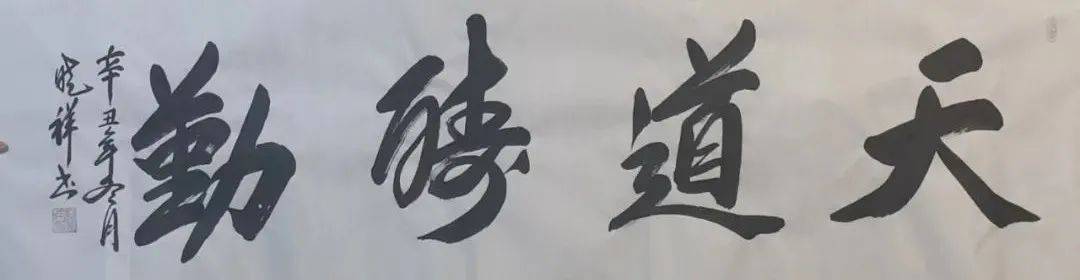 天道酬勤
辛丑年冬月
晓祥书